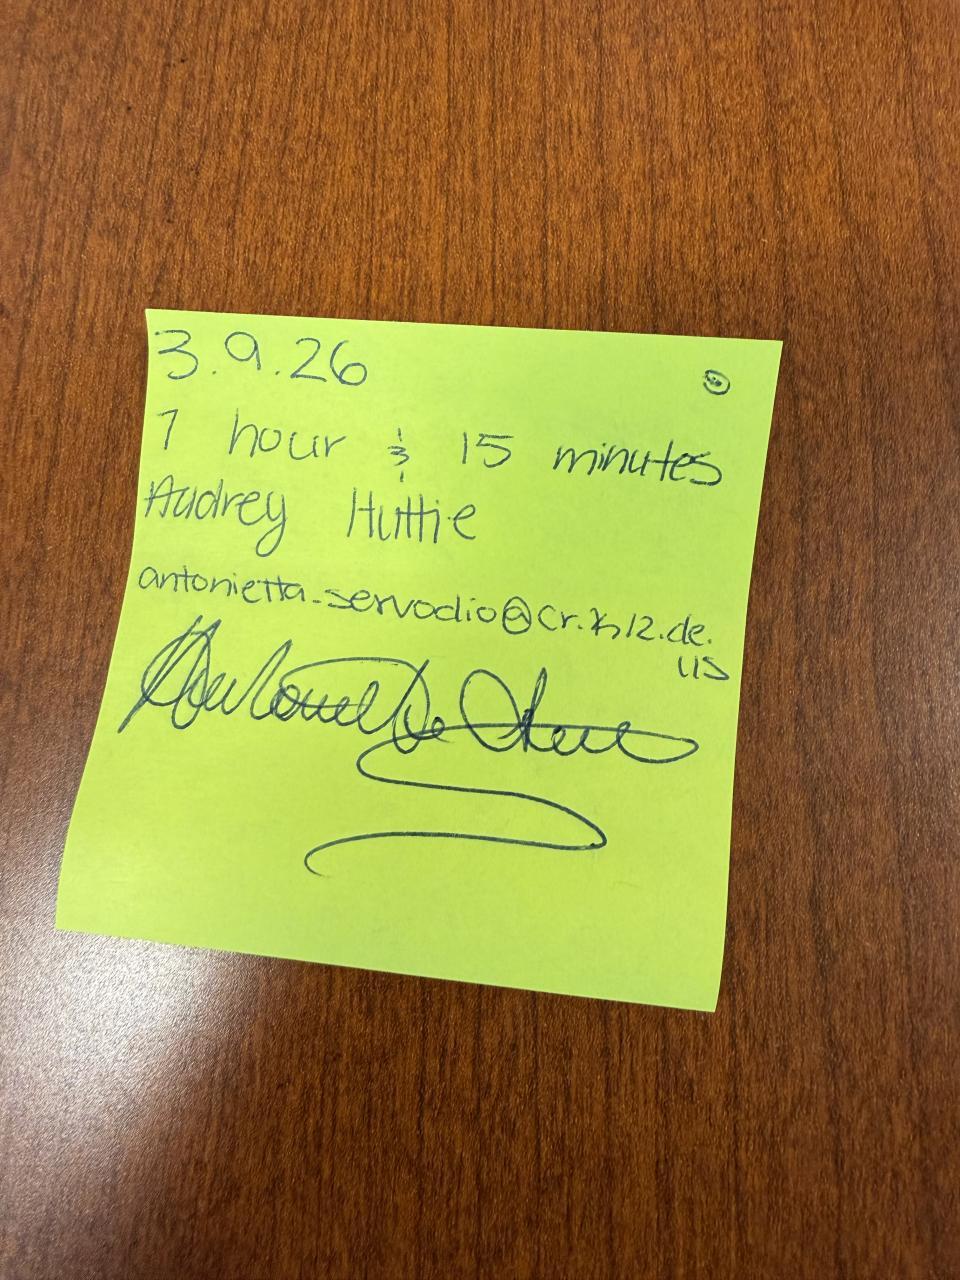 3.9.26
1 hour & 15 minutes
Audrey Huttie
antonietta_servodio@cr.k12.de.
us